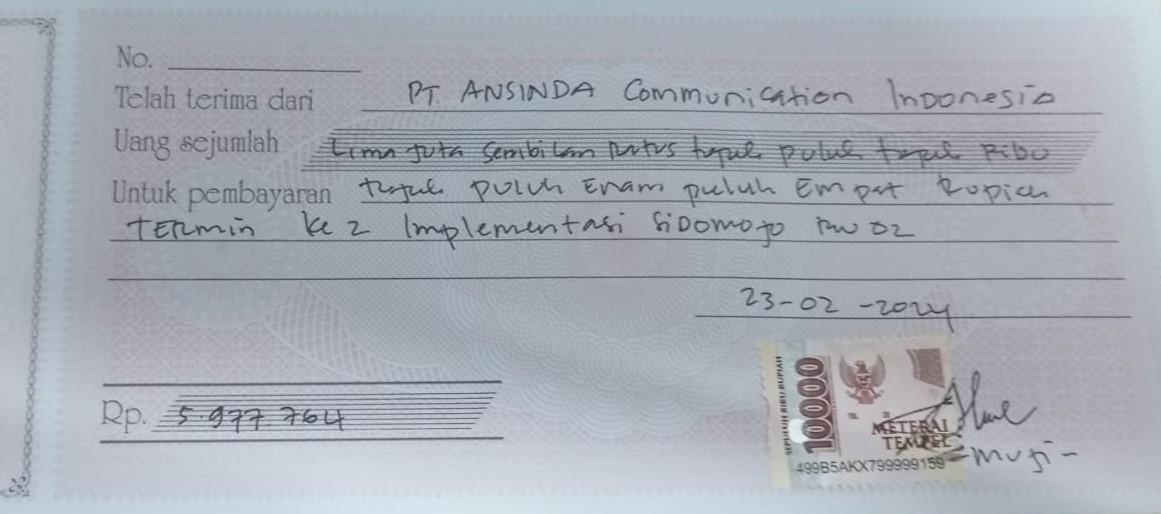 No.
Telah terima dari PT. ANSINDA Communication Indonesia
Uang sejumlah Lima juta Sembilan Ratus tujuh puluh tujuh Ribu
Untuk pembayaran tujuh puluh Enam puluh Empat Rupiah
TERmin ke 2 Implementasi SiDomojo RW 02
23-02-2024
Rp. 5.977.764
SEPULUH RIBU RUPIAH
10000
METERAI
TEMPEL
499B5AKX799999159
muji-